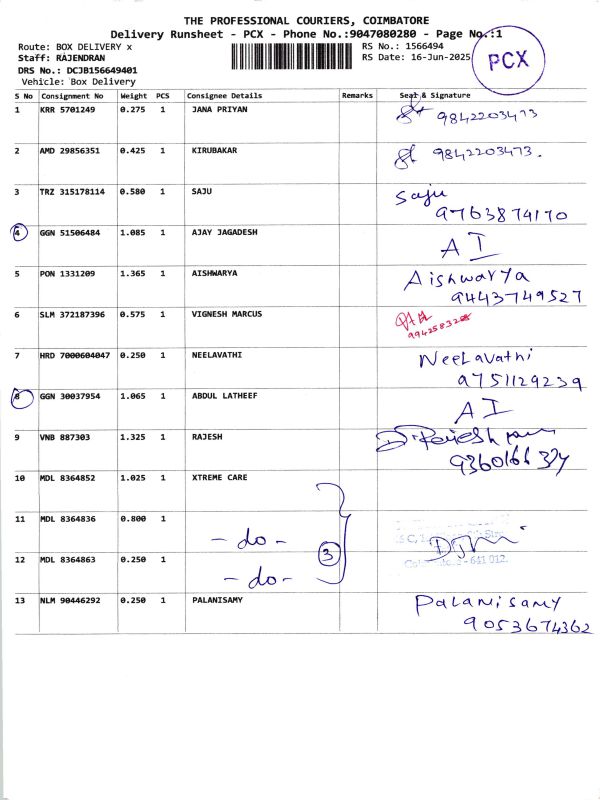 THE PROFESSIONAL COURIERS, COIMBATORE
Delivery Runsheet - PCX - Phone No.:9047080280 - Page No.:1
Route: BOX DELIVERY x
RS No.: 1566494
Staff: RAJENDRAN
RS Date: 16-Jun-2025
DRS No.: DCJB156649401
Vehicle: Box Delivery
PCX
S No Consignment No Weight PCS Consignee Details Remarks Seal & Signature
1 KRR 5701249 0.275 1 JANA PRIYAN
9842203473
2 AMD 29856351 0.425 1 KIRUBAKAR
9842203473.
3 TRZ 315178114 0.580 1 SAJU Saju
9763874170
4 GGN 51506484 1.085 1 AJAY JAGADESH
AI
5 PON 1331209 1.365 1 AISHWARYA Aishwarya
9443749527
6 SLM 372187396 0.575 1 VIGNESH MARCUS
7 HRD 7000604047 0.250 1 NEELAVATHI Neelavathi
9751129239
8 GGN 30037954 1.065 1 ABDUL LATHEEF
AI
9 VNB 887303 1.325 1 RAJESH D. Rajesh
10 MDL 8364852 1.025 1 XTREME CARE
11 MDL 8364836 0.800 1
- do -
12 MDL 8364863 0.250 1 3
- 641 012.
- do -
13 NLM 90446292 0.250 1 PALANISAMY Palanisamy
9053674362